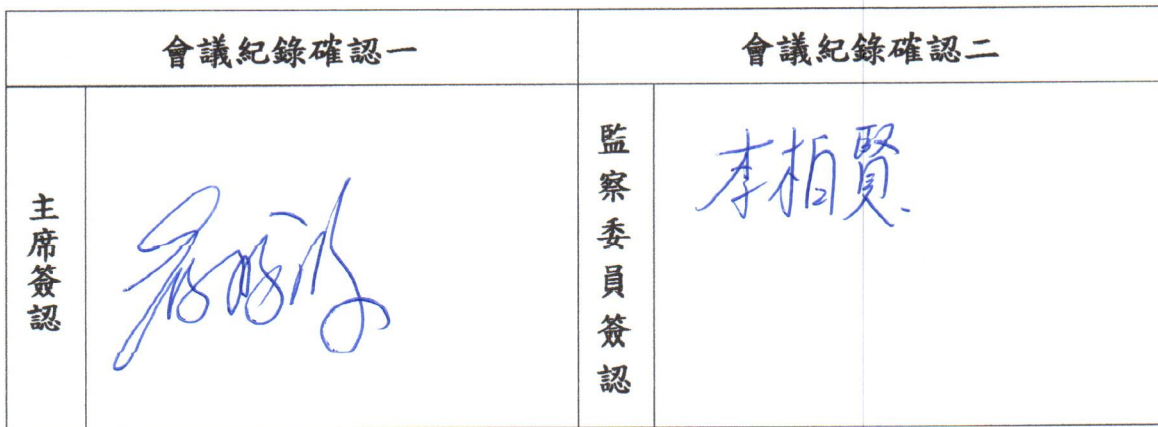 會議紀錄確認一
會議紀錄確認二
主席簽認
監察委員簽認
李柏賢